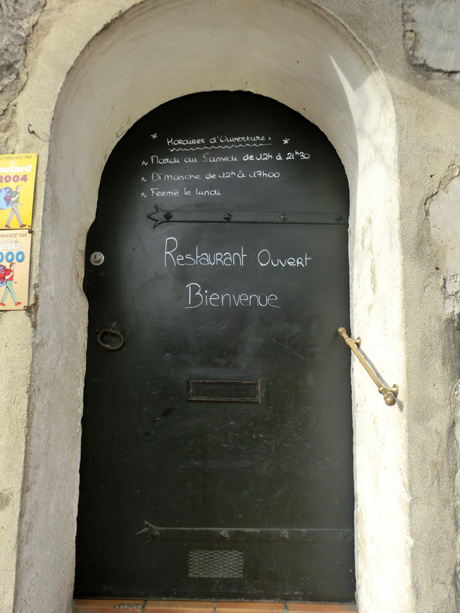 * Horaires d'Ouverture: *
~ Mardi au Samedi de 12h à 21h30
~ Dimanche de 12h à 17h00
~ Fermé le lundi
Restaurant Ouvert
Bienvenue
2004